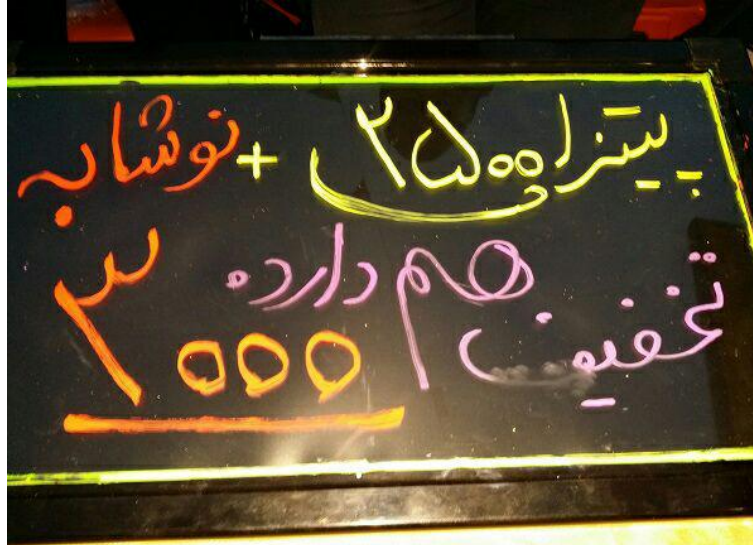 پیتزا ۲۵۰۰ی + نوشابه
تخفیف هم دارده
۳۰۰۰